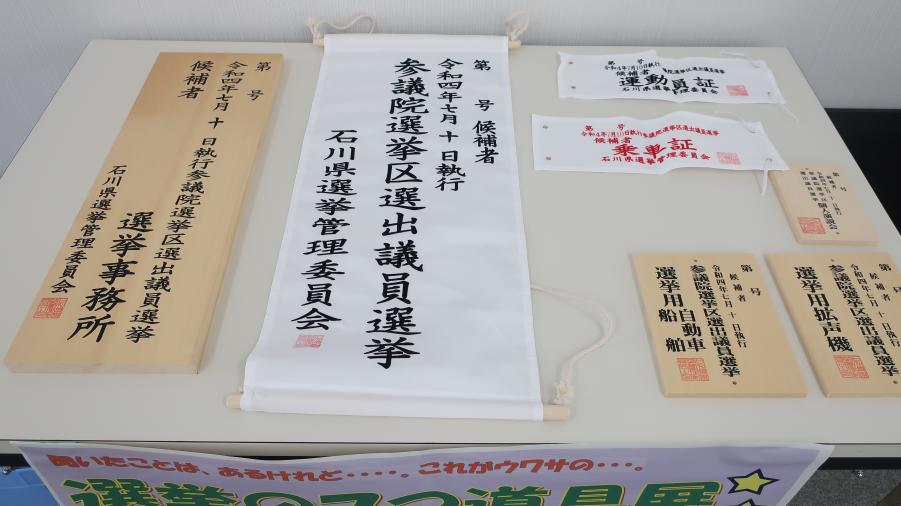 第　号
令和四年七月十日執行参議院選挙区選出議員選挙
候補者
選挙事務所
石川県選挙管理委員会
第　号候補者
令和四年七月十日執行
参議院選挙区選出議員選挙
石川県選挙管理委員会
第　号
令和4年7月10日執行参議院選挙区選出議員選挙
候補者
運動員証
石川県選挙管理委員会
第　号
令和4年7月10日執行参議院選挙区選出議員選挙
候補者
乗車証
石川県選挙管理委員会
第　号
候補者
令和四年七月十日執行
個人演説会
第　号
候補者
令和四年七月十日執行
参議院選挙区選出議員選挙
選挙用自動車
船舶
第　号
候補者
令和四年七月十日執行
参議院選挙区選出議員選挙
選挙用拡声機
聞いたことは、あるけれど・・・・。これがウワサの・・・。
選挙の7つ道具展